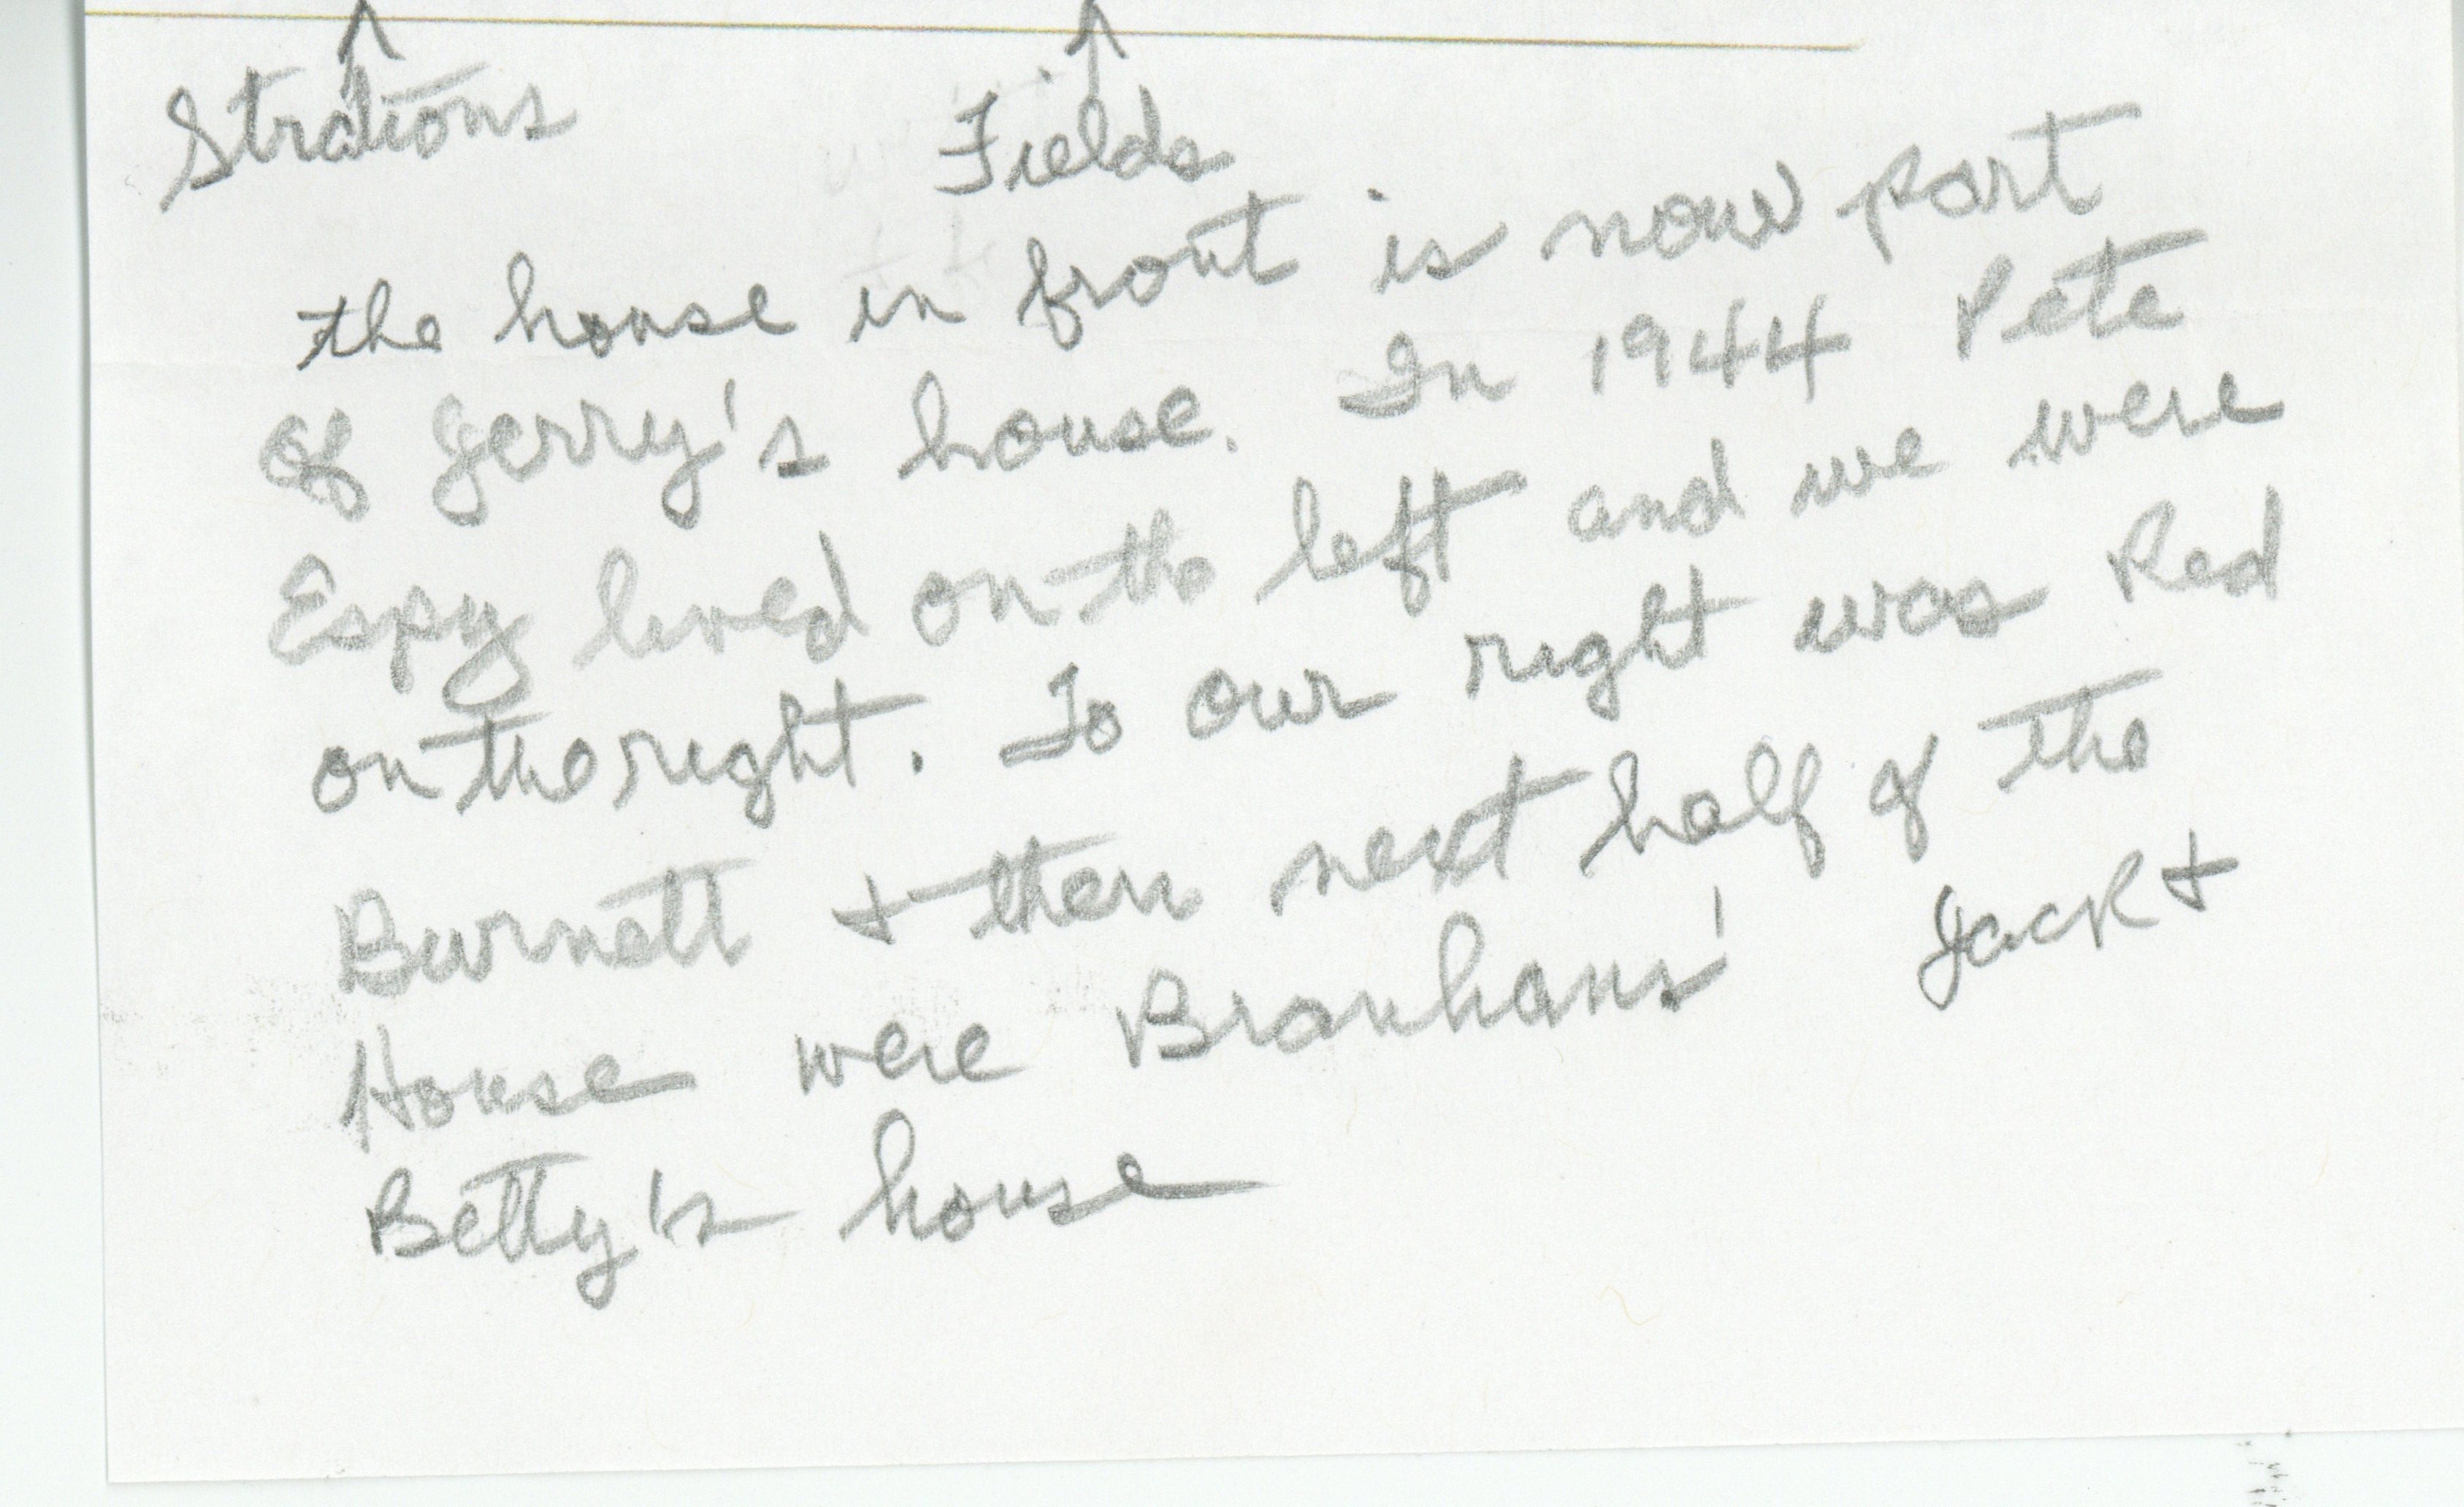 Strattons Fields
the house in front is now part
of Jerry's house. In 1944 Pete
Espy lived on the left and we were
on the right. To our right was Red
Burnett + then next half of the
House were Branhams' Jack +
Betty's house